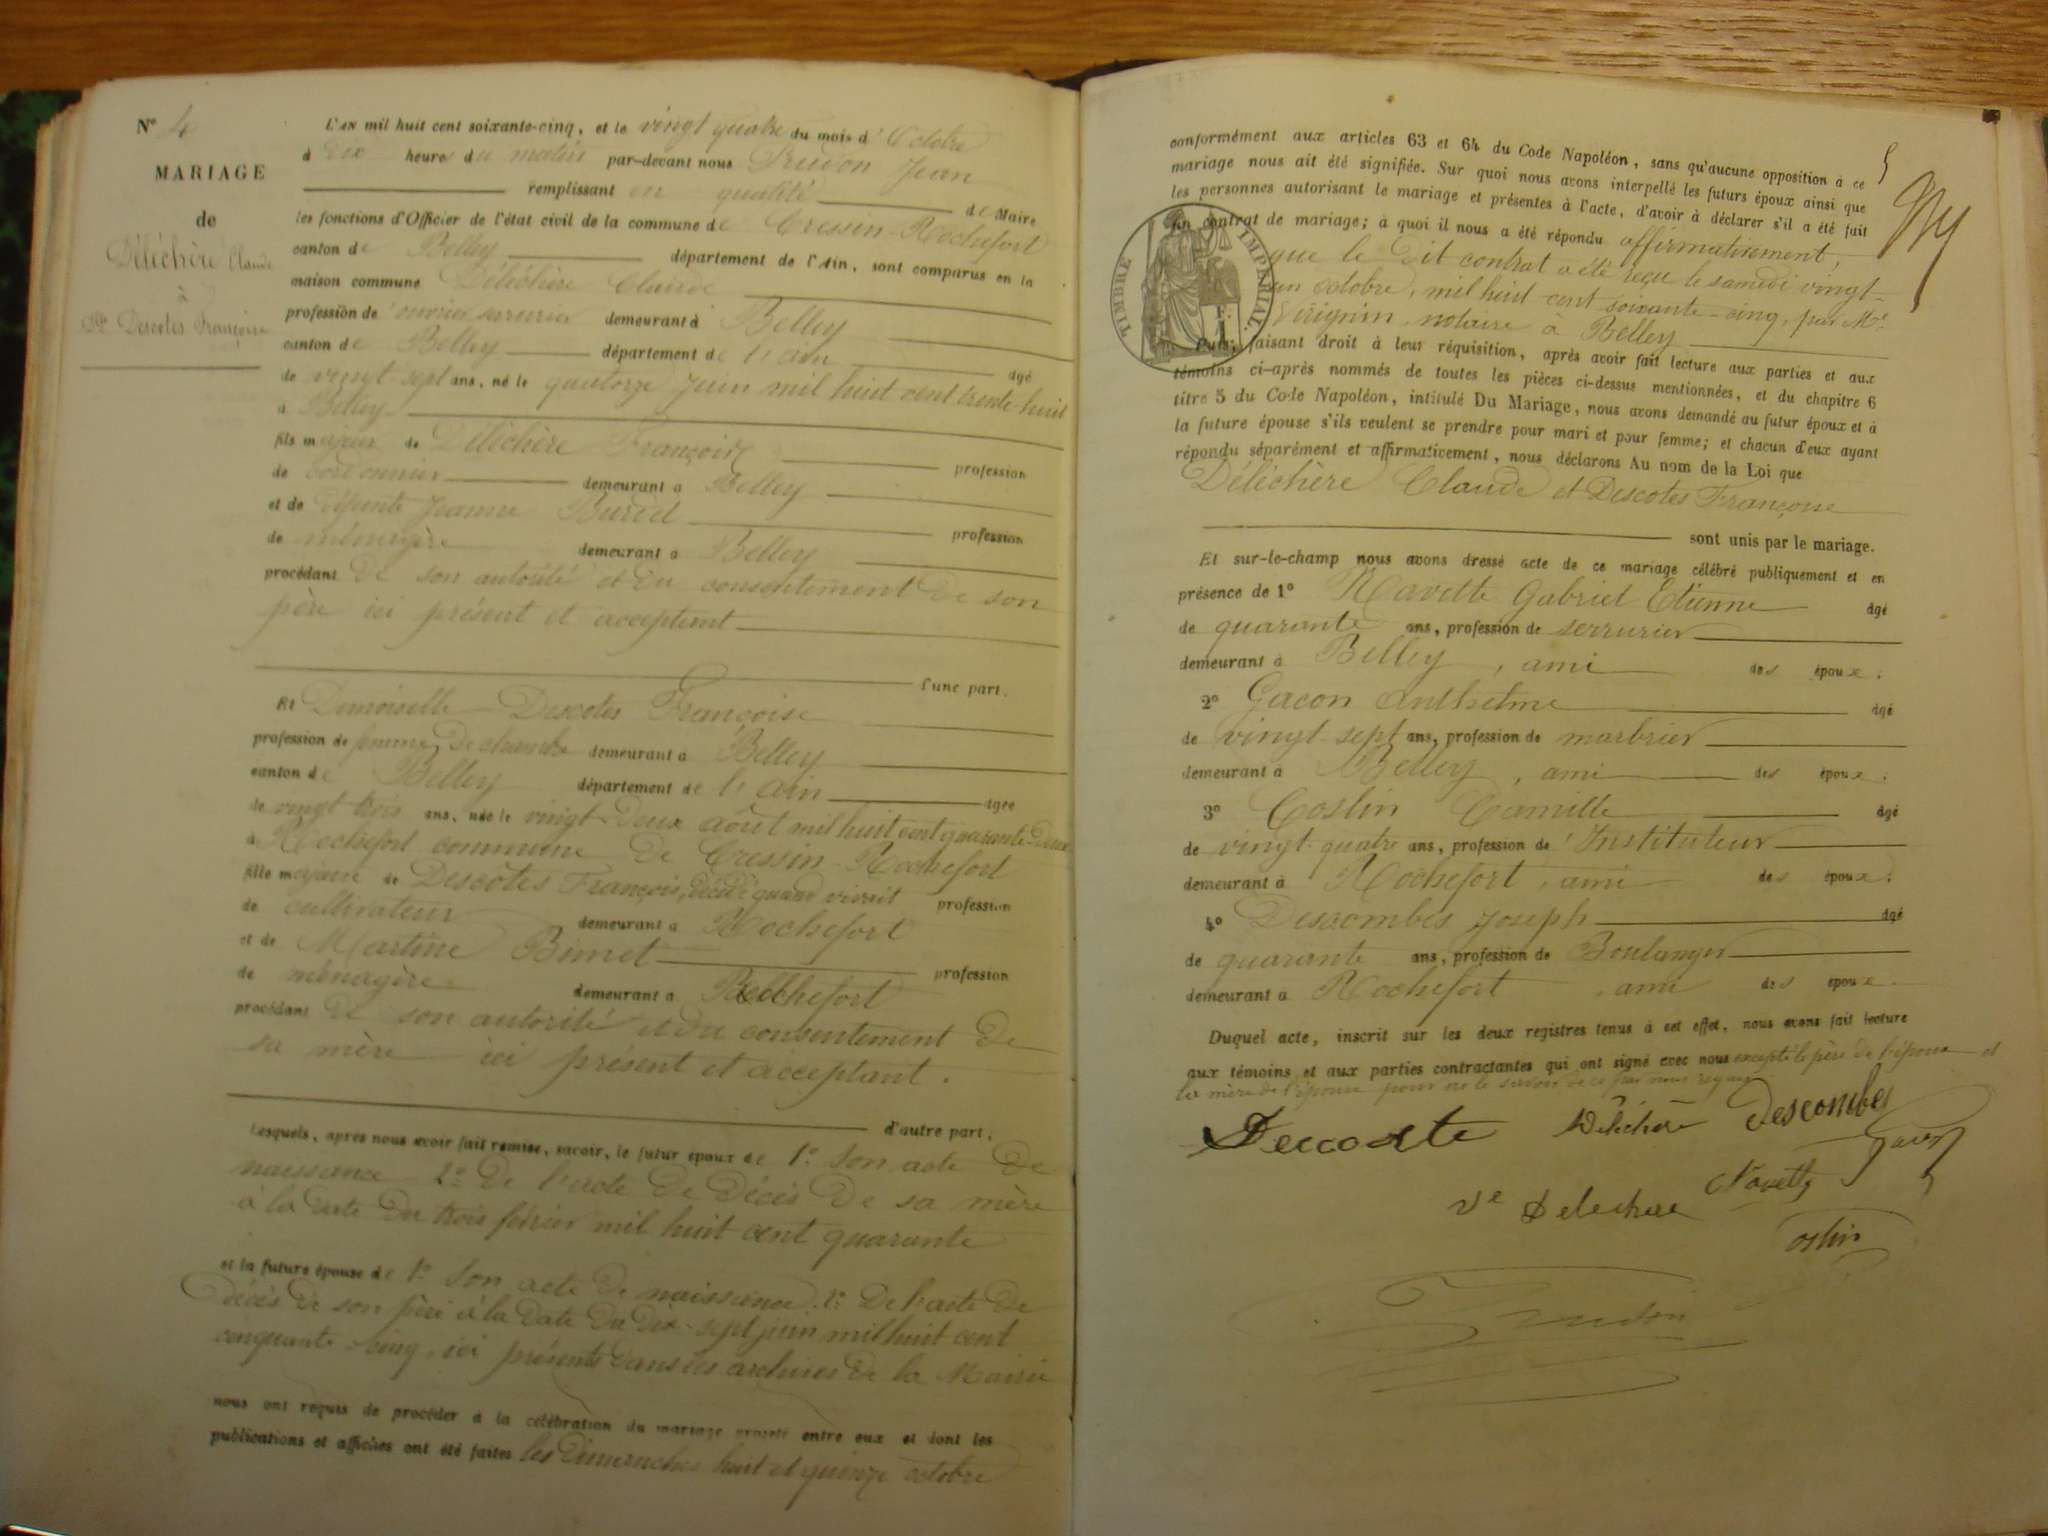 N° 4
MARIAGE
de
Déléchère Claude
à
Mlle Descotes Françoise
L'AN mil huit cent soixante-cinq, et le vingt quatre du mois d'Octobre
à Dix heures du matin par-devant nous Prudon Jean
remplissant en qualité de Maire
les fonctions d'Officier de l'état civil de la commune de Cressin-Rochefort
canton de Belley département de l'Ain, sont comparus en la
maison commune Déléchère Claude
profession de ouvrier serrurier demeurant à Belley
canton de Belley département de l'ain âgé
de vingt sept ans, né le quatorze Juin mil huit cent trente huit
à Belley
fils majeur de Déléchère François profession
de cordonnier demeurant à Belley
et de défunte Jeanne Burdet profession
de ménagère demeurant à Belley
procédant de son autorité et du consentement de son
père ici présent et acceptant
d'une part.
Et Demoiselle Descotes Françoise
profession de femme de chambre demeurant à Belley
canton de Belley département de l'ain âgée
de vingt trois ans, née le vingt-Deux août mil huit cent quarante-deux
à Rochefort commune de Cressin-Rochefort
fille majeure de Descôtes François, décédé quand vivait profession
de cultivateur demeurant à Rochefort
et de Martine Bimet profession
de ménagère demeurant à Rochefort
procédant de son autorité et du consentement de
sa mère ici présent et acceptant.
d'autre part;
Lesquels, après nous avoir fait remise, savoir, le futur époux de 1° Son acte de
naissance 2° De l'acte de Décès de sa mère
à la date du trois février mil huit cent quarante
et la future épouse de 1° Son acte de naissance, 2° De l'acte de
décès de son père à la date du Dix-sept juin mil huit cent
cinquante-cinq, ici présents dans les archives de la Mairie
nous ont requis de procéder à la célébration du mariage projeté entre eux et dont les
publications et affiches ont été faites les Dimanches huit et quinze octobre
conformément aux articles 63 et 64 du Code Napoléon, sans qu'aucune opposition à ce
mariage nous ait été signifiée. Sur quoi nous avons interpellé les futurs époux ainsi que
les personnes autorisant le mariage et présentes à l'acte, d'avoir à déclarer s'il a été fait
un contrat de mariage; à quoi il nous a été répondu affirmativement,
que le Dit contrat a été reçu le samedi vingt-
un octobre, mil huit cent soixante-cinq, par Me
Virignin, notaire à Belley
TIMBRE IMPÉRIAL.
F. 1
Puis, faisant droit à leur réquisition, après avoir fait lecture aux parties et aux
témoins ci-après nommés de toutes les pièces ci-dessus mentionnées, et du chapitre 6
titre 5 du Code Napoléon, intitulé Du Mariage, nous avons demandé au futur époux et à
la future épouse s'ils veulent se prendre pour mari et pour femme; et chacun d'eux ayant
répondu séparément et affirmativement, nous déclarons Au nom de la Loi que
Déléchère Claude et Descotes Françoise
sont unis par le mariage.
Et sur-le-champ nous avons dressé acte de ce mariage célébré publiquement et en
présence de 1° Navette Gabriel Etienne âgé
de quarante ans, profession de serrurier
demeurant à Belley, ami des époux;
2° Gacon Anthelme âgé
de vingt-sept ans, profession de marbrier
demeurant à Belley, ami des époux;
3° Coslin Camille âgé
de vingt-quatre ans, profession de Instituteur
demeurant à Rochefort, ami des époux;
4° Descombes Joseph âgé
de quarante ans, profession de Boulanger
demeurant à Rochefort, ami des époux.
Duquel acte, inscrit sur les deux registres tenus à cet effet, nous avons fait lecture
aux témoins et aux parties contractantes qui ont signé avec nous excepté le père de l'époux et
la mère de l'épouse pour ne le savoir de ce par nous requis
Deccoste Déléchère Descombes
Gacon
Ve Delechere Navette
Coslin
Prudon